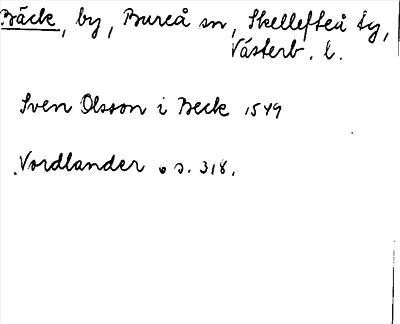 Bäcke, by, Bureå sn, Skellefteå tg,
Västerb. l.
Sven Olsson i Beck 1549
Nordlander o s. 318.